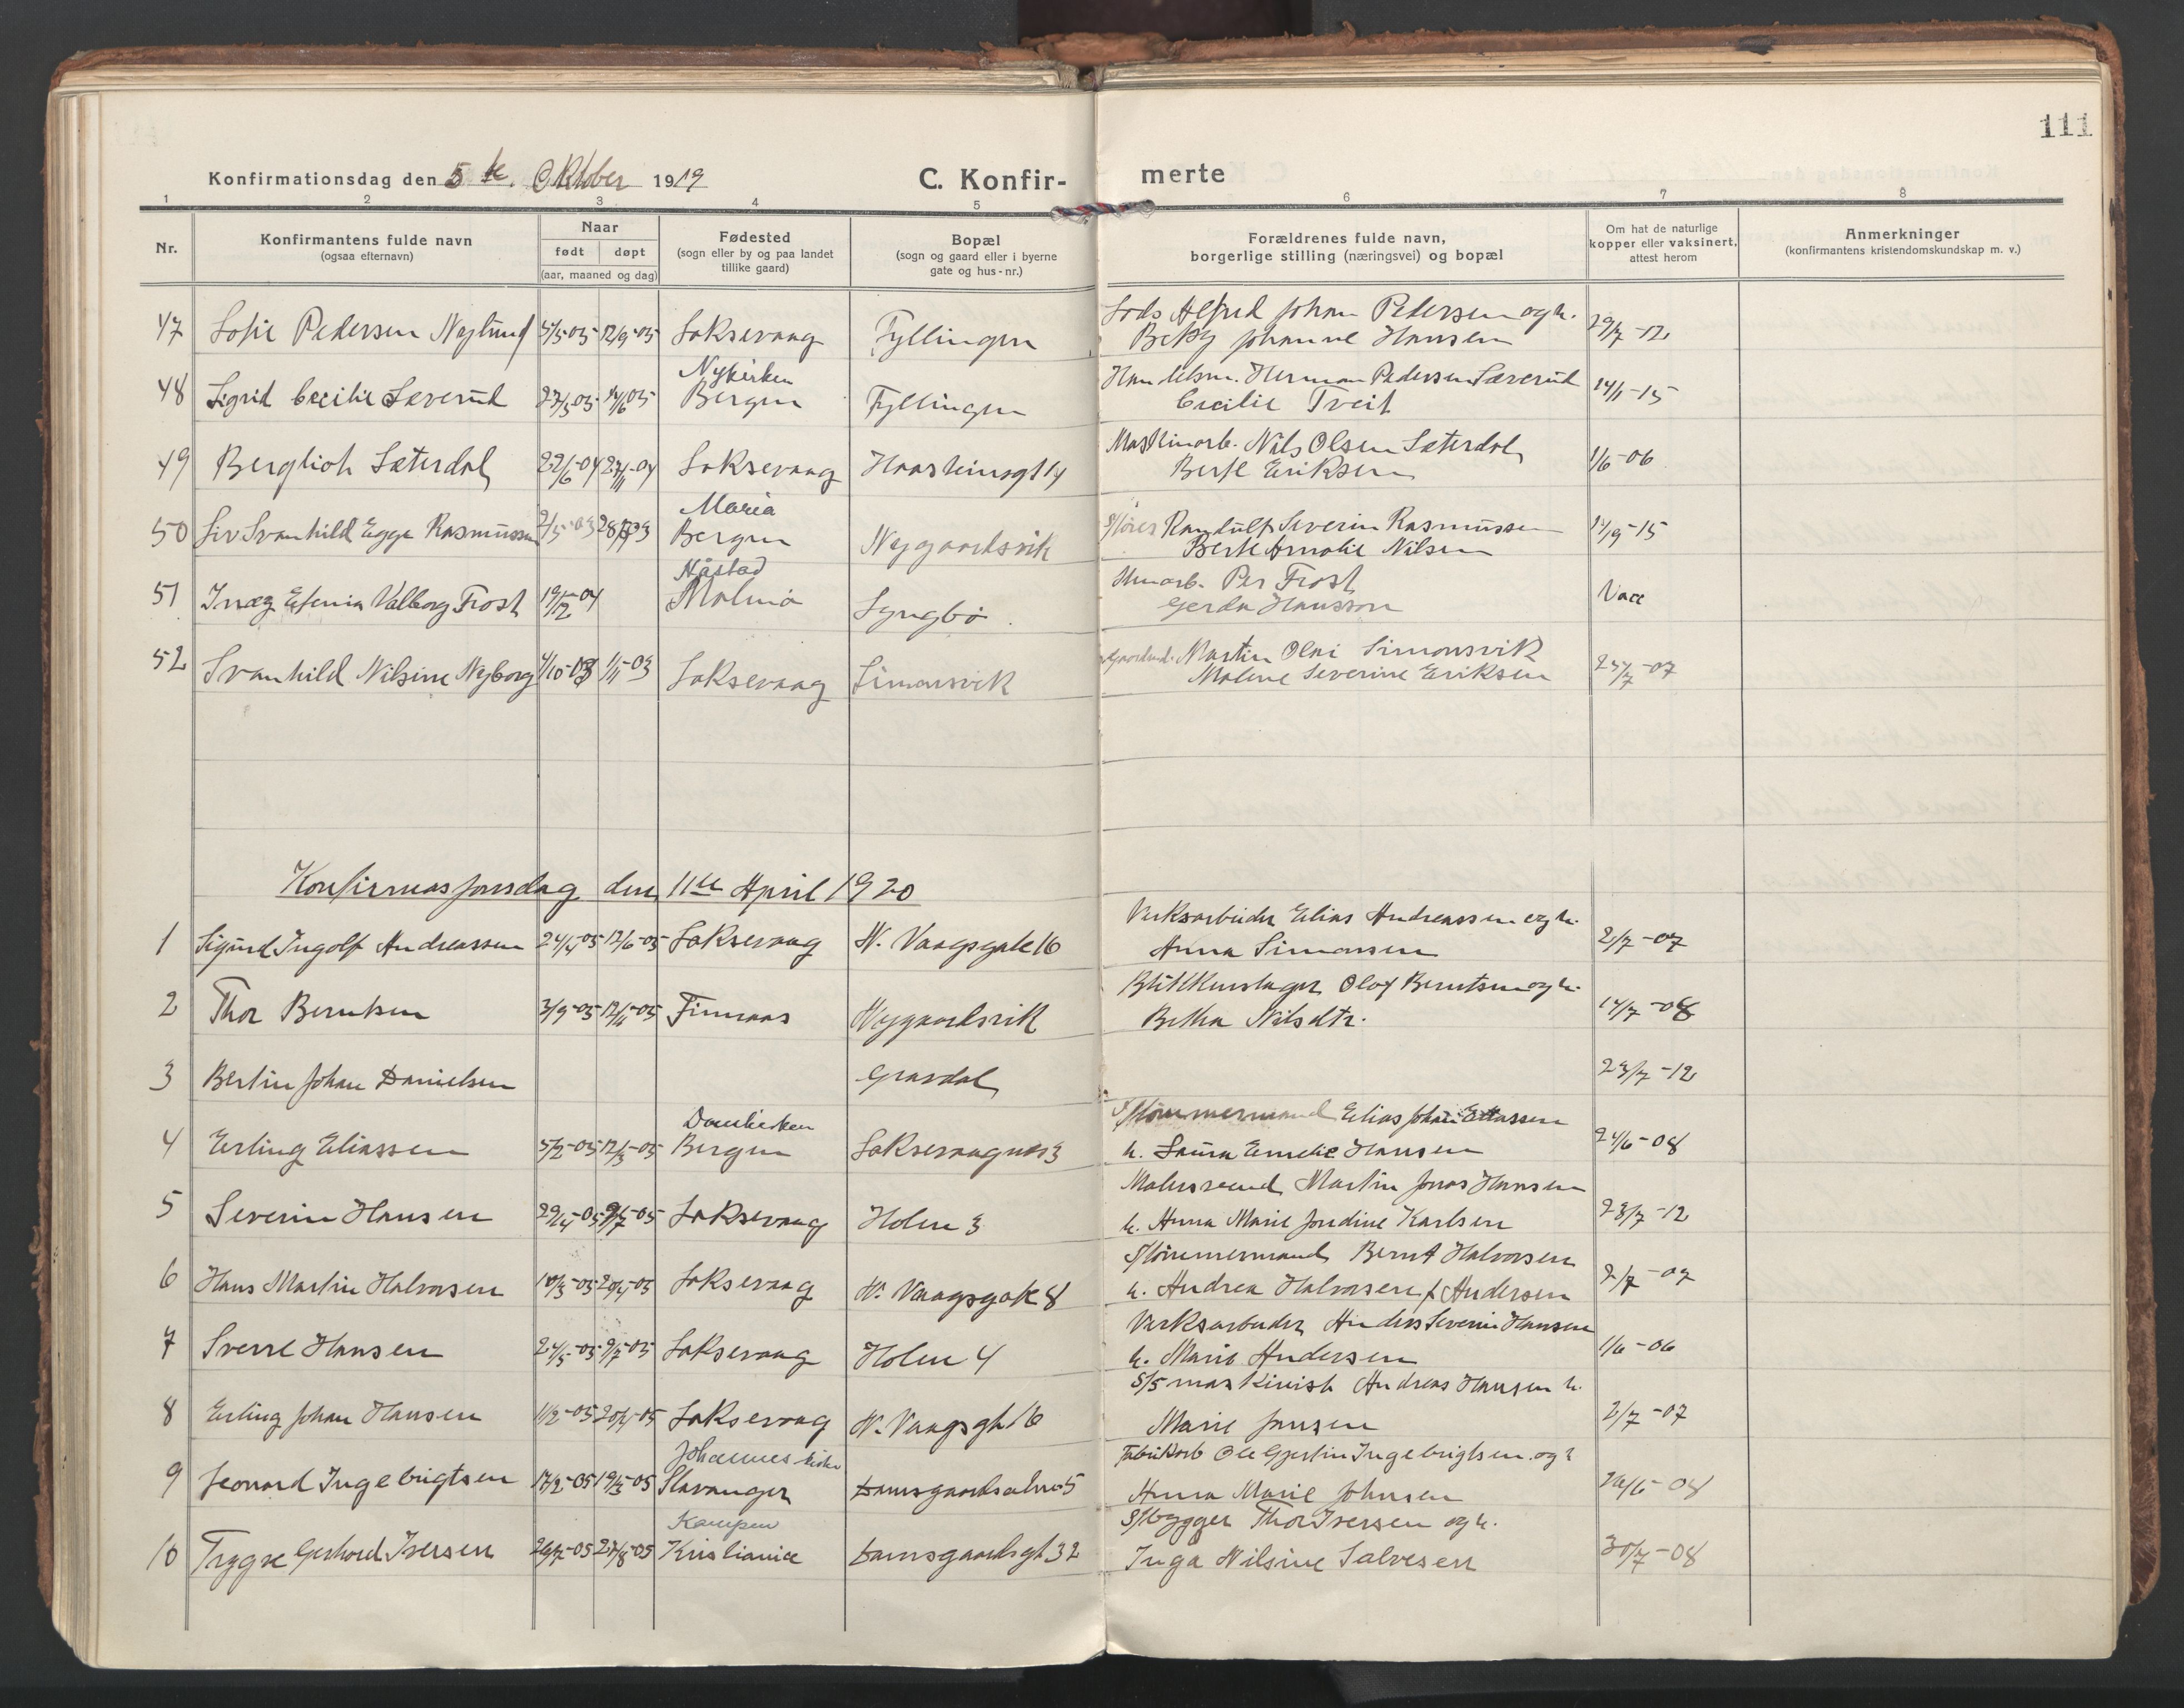 111
Konfirmationsdag den 5te. Oktober 1919
C. Konfir- merte
1 2 3 4 5 6 7 8
Nr.
Konfirmantens fulde navn
(ogsaa efternavn)
Naar
født døpt
(aar, maaned og dag)
Fødested
(sogn eller by og paa landet
tillike gaard)
Bopæl
(sogn og gaard eller i byerne
gate og hus-nr.)
Forældrenes fulde navn,
borgerlige stilling (næringsvei) og bopæl
Om hat de naturlige
kopper eller vaksinert,
attest herom
Anmerkninger
(konfirmantens kristendomskundskap m. v.)
Lods Alfred Johan Pedersen og h.
47 Sofie Pedersen Nylund 4/5-05 12/9-05 Laksevaag Fyllingen Betsy Johanne Hansen 29/7-12
Nykirken Handelsm. Herman Pedersen Sæverud
48 Sigrid Cecilie Sæverud 27/3-05 14/6 05 Bergen Fyllingen Cecilie Tveit 14/1-15
Maskinarb. Nils Olsen Sæterdal
49 Bergliot Sæterdal 22/6-04 27/11-04 Laksevaag Haasteinsgt 14 Berte Eriksen 1/6-06
Maria S/fører Randulf Severin Rasmussen
50 Liv Svanhild Egge Rasmussen 2/5-03 Bergen Nygaardsvik Berte Amalie Nilsen 12/9-15
Per Frost
51 Valborg Frost 19/12-04 Malmö Lyngbö Gerda Hansson Vacc
Gaardbr. Martin Olai Simonsvik
52 Svanhild Nilsine Nyborg 4/10-03 1/11-03 Laksevaag Simonsvik Malene Severine Eriksen 24/7-07
Konfirmasjonsdag den 11te April 1920
Verksarbeider Elias Andreassen og h.
1 Sigurd Ingolf Andreassen 24/4-05 12/6-05 Laksevaag N. Vaagsgate 16 Anna Simonsen 2/7-07
Blikkenslager Olaf Berntsen og h.
2 Thor Berntsen 3/9-05 12/11-05 Finnaas Nygaardsvik Betha Nilsdtr. 14/7-08
3 Bertin Johan Danielsen Grasdal 23/7-12
Domkirken S/tömmermand Elias Johan Eliassen
4 Erling Eliassen 5/2-05 12/3-05 Bergen Laksevaagnes 3 h. Laura Emelie Hansen 24/6-08
Malersvend Martin Jonas Hansen
5 Severin Hansen 29/4-05 9/7-05 Laksevaag Holen 3 h. Anna Marie Jondine Karlsen 23/7-12
S/tömmermand Bernt Halvorsen
6 Hans Martin Halvorsen 10/3-05 20/4-05 Laksevaag N. Vaagsgate 8 h. Andrea Halvorsen f. Andersen 2/7-07
Verksarbeider Anders Severin Hansen
7 Sverre Hansen 24/5-05 9/7-05 Laksevaag Holen 4 h. Marie Andersen 1/6-06
S/S maskinist Andreas Hansen h.
8 Erling Johan Hansen 11/2-05 20/4-05 Laksevaag N. Vaagsgt 16 Marie Jansen 2/7-07
Johannes kirke Fabrikarb Ole Gjertin Ingebrigtsen og h
9 Leonard Ingebrigtsen 17/2-05 19/3-05 Stavanger Damsgaardsalmen 5 Anna Marie Johnsen 24/6-08
Kampen S/bygger Thor Iversen og h.
10 Trygve Gerhard Iversen 29/7-05 27/8-05 Kristiania Damsgaardsgt 32 Inga Nilsine Salvesen 30/7-08